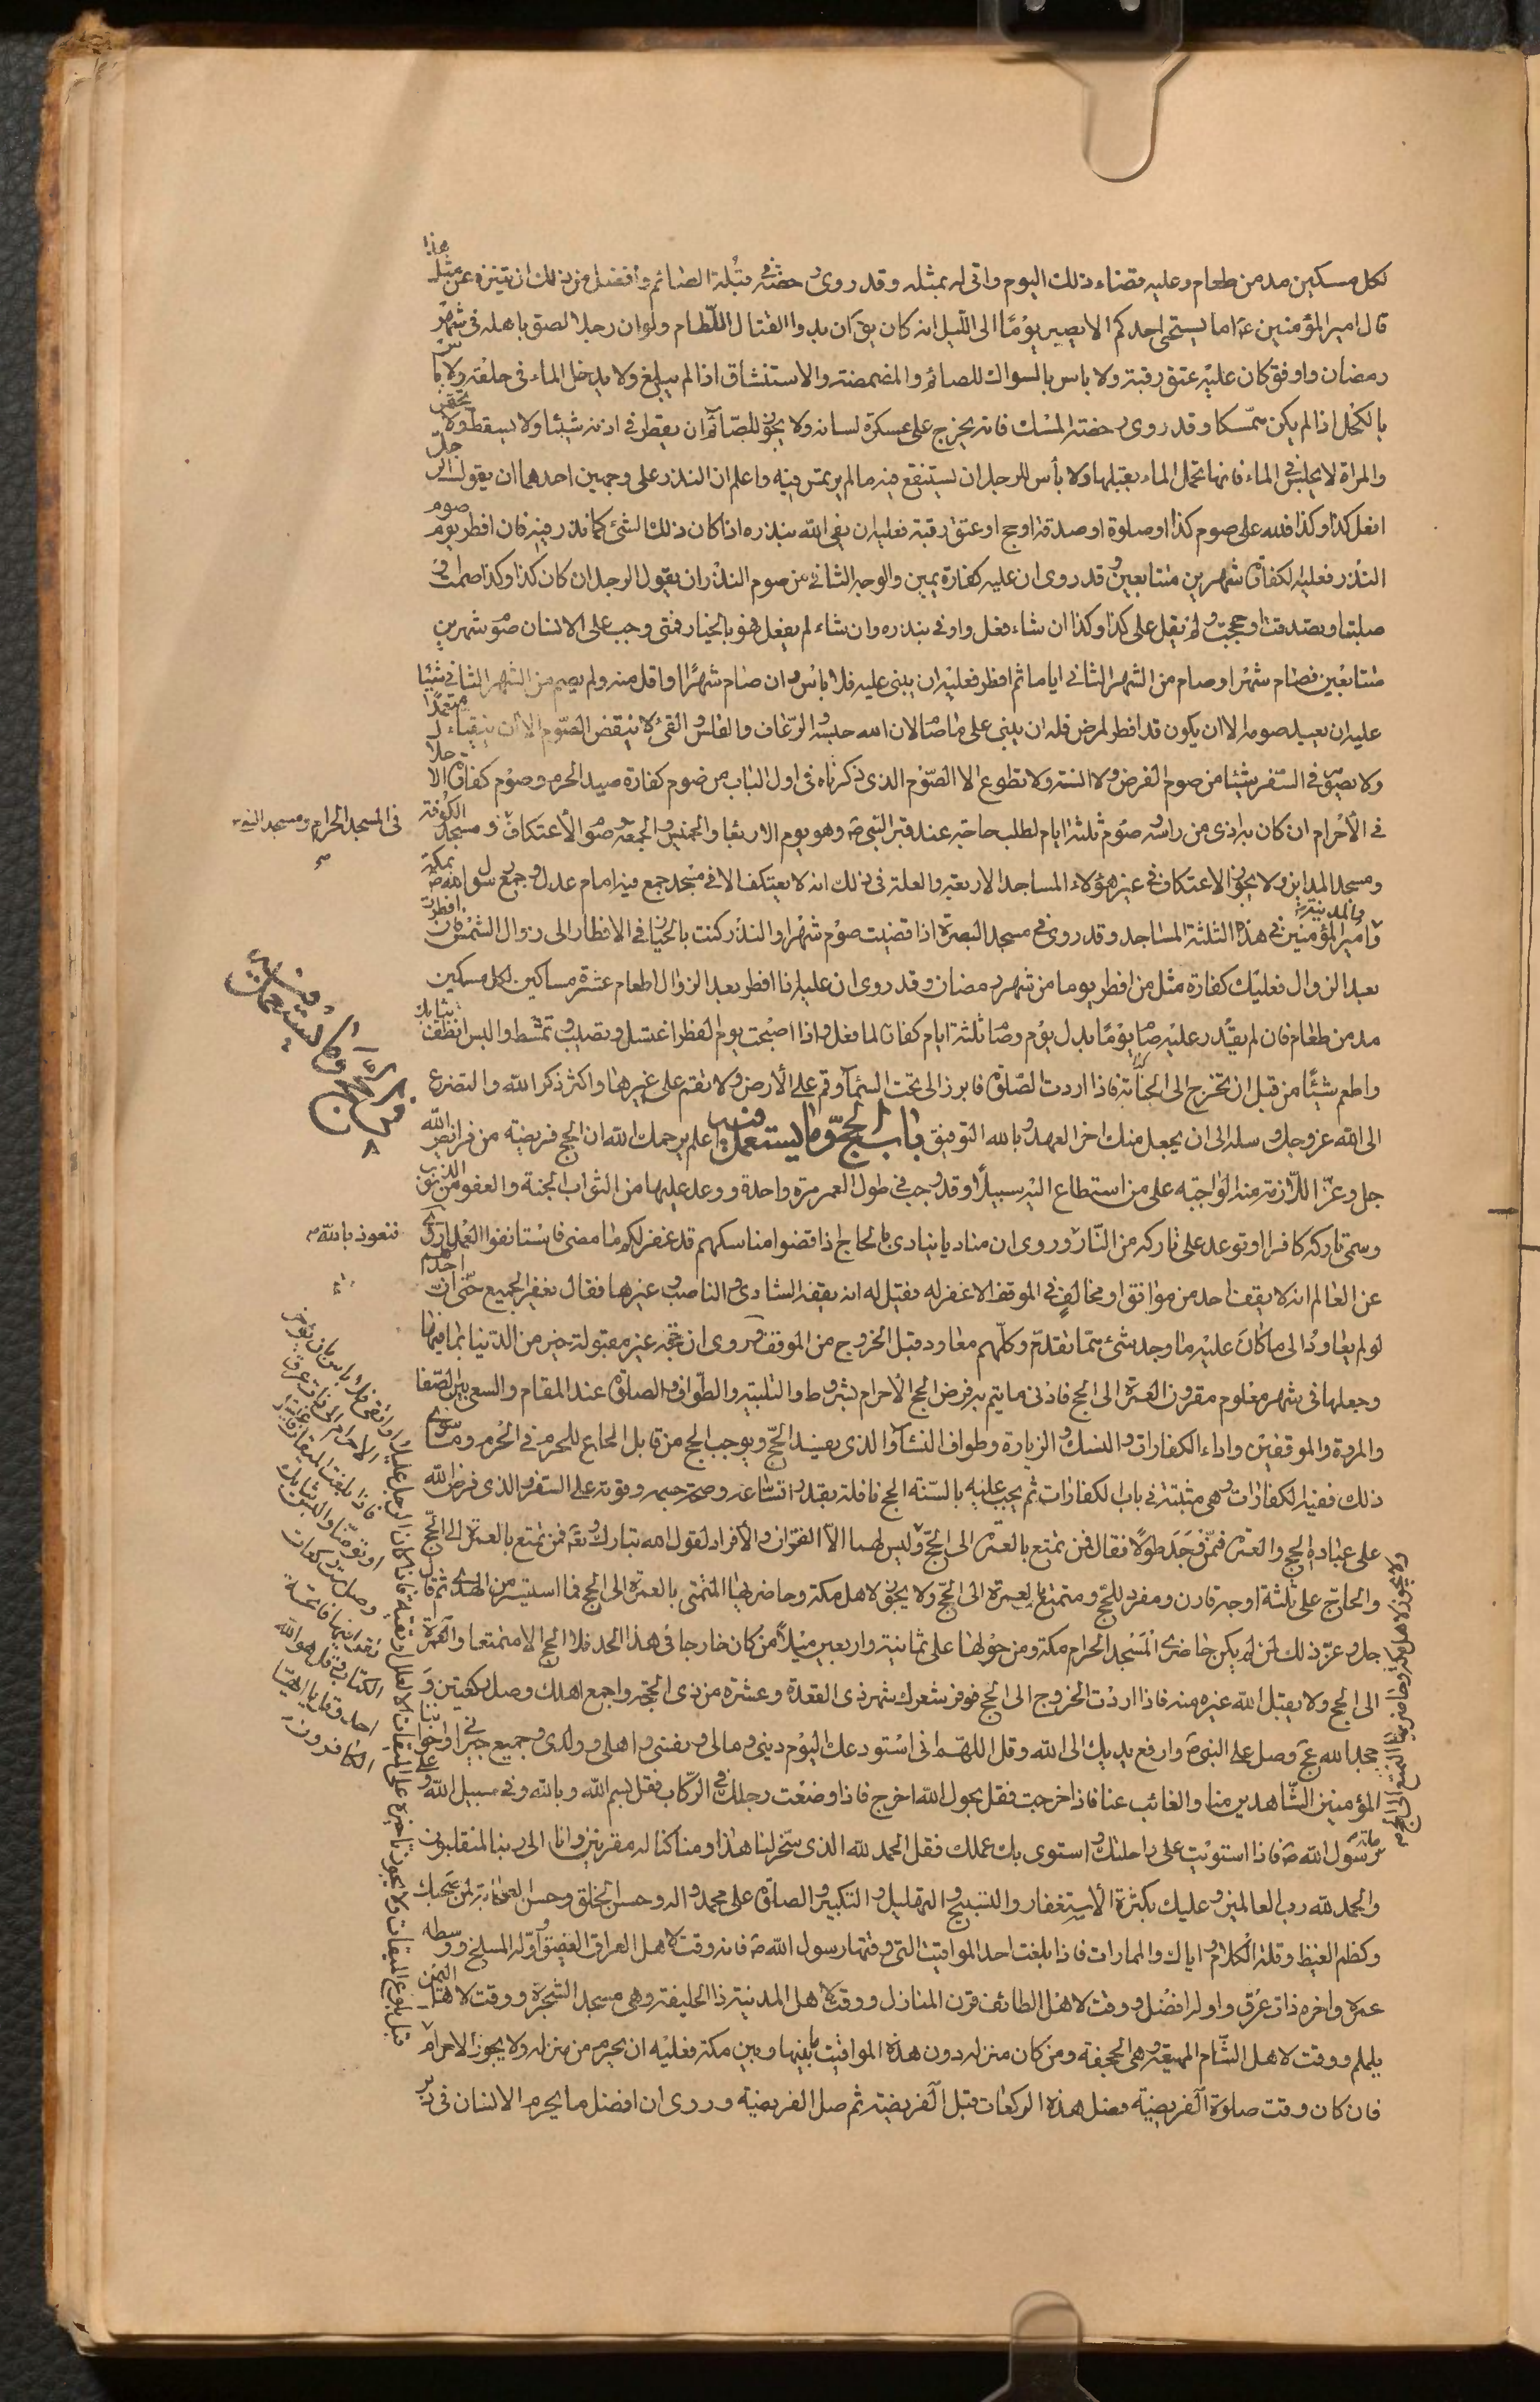 لكل مسكين مد من طعام وعليه قضاء ذلك اليوم وانى له بمثله وقد روى رخصة فى قبلة الصائم وأفضل من ذلك ان يتنزه عن مثل هذا
قال امير المؤمنين ع اما يستحى احدكم الا يصبر يوما الى الليل انه كان يق ان بدو القتال اللطام ولو ان رجلا لصق باهله فى شهر
رمضان وادفق كان عليه عتق رقبة ولا باس بالسواك للصائم والمضمضة والاستنشاق اذا لم يبلغ ولا يدخل الماء فى حلقه ولا باس
بالكحل اذا لم يكن متمسكا وقد روى رخصة المسك فانه يخرج على عسكرة لسانه ولا يجوز للصائم ان يقطر فى اذنه شيئا ولا يسقط ولا يحتقن
والمراة لا يجلس فى الماء فانها تحمل الماء بقبلها ولا بأس للرجل ان يستنقع فيه ما لم يرتمس فيه واعلم ان النذر على وجهين احدهما ان يقول الرجل
افعل كذا وكذا فلله على صوم كذا او صلوة او صدقة او حج او عتق رقبة فعليه ان يفى الله بنذره اذا كان ذلك الشئ كما نذر فيه فان افطر يوم صوم
النذر فعليه الكفارة شهرين متتابعين وقد روى ان عليه كفارة يمين والوجه الثانى من صوم النذر ان يقول الرجل ان كان كذا وكذا صمت او
صليت او تصدقت او حججت ولم يقل على كذا وكذا ان شاء فعل واوفى بنذره وان شاء لم يفعل فهو بالخيار فمتى وجب على الانسان صوم شهرين
متتابعين فصام شهرا وصام من الشهر الثانى اياما ثم افطر فعليه ان يبنى عليه فلا باس وان صام شهرا او اقل منه ولم يصم من الشهر الثانى شيئا
عليه ان يعيد صومه الا ان يكون قد افطر لمرض فله ان يبنى على ما صام لان الله حبسه والرعاف والقلس والقئ لا ينقض الصوم الا ان يتقيأ متعمدا
ولا تصوم فى السفر شيئا من صوم الفرض ولا السنة ولا تطوع الا الصوم الذى ذكرناه فى اول الباب من صوم كفارة صيد الحرم وصوم كفارة الاحلال
فى الاحرام ان كان به اذى من راسه وصوم ثلثة ايام لطلب حاجة عند قبر النبى ص وهو يوم الاربعا والخميس والجمعة وصوم الاعتكاف ومسجد الكوفة
فى المسجد الحرام ومسجد النبى
ومسجد المداين ولا يجوز الاعتكاف فى غير هؤلاء المساجد الاربعة والعلة فى ذلك انه لا يعتكف الا فى مسجد جمع فيه امام عدل وجمع رسول الله ص بمكة
والمدينة
وامير المؤمنين فى هذه الثلثة المساجد وقد روى فى مسجد البصرة اذا قضيت صوم شهرا والنذر كنت بالخيار فى الافطار الى زوال الشمس فان افطرت
بعد الزوال فعليك كفارة مثل من افطر يوما من شهر رمضان وقد روى ان عليه اذا افطر بعد الزوال اطعام عشرة مساكين لكل مسكين
مد من طعام فان لم يقدر عليه صام يوما بدل يوم وصام ثلثة ايام كفارة لما فعل واذا اصبحت يوم الفطر اغتسل وتطيب وتمشط والبس انظف ثيابك
واطعم شيئا من قبل ان تخرج الى الجبانة فاذا اردت الصلوة فابرز الى تحت السماء وقم على الارض ولا تقم على غيرها واكثر ذكر الله والتضرع
الى الله عز وجل وسله الى ان يجعل منك اخر العهد وبالله التوفيق باب الحج وما يستعمل فيه واعلم يرحمك الله ان الحج فريضة من فرايض الله
جل وعز اللازمة منه الواجبه على من استطاع اليه سبيلا وقد وجب فى طول العمر مرة واحدة ووعد عليها من الثواب الجنة والعفو من الذنوب
وسمى تاركه كافرا وتوعد على تاركه من النار وروى ان مناديا ينادى بالحاج اذا قضوا مناسكهم قد غفر لكم ما مضى فاستانفوا العمل
فنعوذ بالله
عن العالم انه لا يقف احد من موافق او مخالف فى الموقف الا غفر له فقيل له انه يقفه الشادى والناصب وغيرها فقال يغفر للجميع حتى ان احدهم
لو لم يعاود الى ما كان عليه ما وجد شئ مما تقدم وكلهم معاود قبل الخروج من الموقف وروى ان حجة غير مقبولة خير من الدنيا بما فيها
وجعلها فى شهر معلوم مقرون العمرة الى الحج فادنى ما يتم به فرض الحج الاحرام بشروط والتلبيه والطواف والصلوة عند المقام والسعى بين الصفا
والمروة والموقفين واداء الكفارات والنسك والزيارة وطواف النساء والذى يفسد الحج ويوجب الحج من قابل الجماع للمحرم فى الحرم وما سوى
ذلك ففيه الكفارات وهى مثبتة فى باب الكفارات ثم يجب عليه بالسنة الحج نافلة بقدر اتساعه وصحة جسمه وقوته على السفر والذى فرض الله
على عباده الحج والعمرة فمن وجد طولا فقال فمن تمتع بالعمرة الى الحج وليس لهما الا القران والأفراد لقول الله تبارك وتع فمن تمتع بالعمرة الى الحج
والحاج على ثلثة اوجه قارن ومفرد للحج ومتمتع بالعمرة الى الحج ولا يجوز لاهل مكة وحاضريها التمتع بالعمرة الى الحج فما استيسر من الهدى ثم قال
جل وعز ذلك لمن لم يكن حاضرى المسجد الحرام مكة ومن حولها على ثمانية واربعين ميلا من كان خارجا فى هذا الحد فلا الحج الا متمتعا والعمرة
الى الحج ولا يقبل الله غيره منه فاذا اردت الخروج الى الحج فوفر شعرك شهر ذى القعدة وعشرة من ذى الحجة واجمع اهلك وصل ركعتين و
مجد الله عج وصل على النبى ص وارفع يديك الى الله وقل اللهم انى استودعك اليوم دينى ومالى ونفسى واهلى وولدى وجميع جيرانى واخواننا
المؤمنين الشاهدين منا والغائب عنا فاذا خرجت فقل بحول الله اخرج فاذا وضعت رجلك فى الركاب فقل بسم الله وبالله وفى سبيل الله وعلى
ملة رسول الله ص فاذا استويت على راحلتك واستوى بك عملك فقل الحمد لله الذى سخر لنا هذا وما كنا له مقرنين وانا الى ربنا لمنقلبون
والحمد لله رب العالمين وعليك بكثرة الاستغفار والتسبيح والتهليل والتكبير والصلوة على محمد واله وحسن الخلق وحسن الصحابة لمن صحبك
وكظم الغيظ وقلة الكلام واياك والممارات فاذا بلغت احد المواقيت التى وقتها رسول الله ص فانه وقت لاهل العراق العقيق واوله المسلخ ووسطه
غمرة واخره ذات عرق واوله افضل ووقت لاهل الطائف قرن المنازل ووقت لاهل المدينة ذا الحليفة وهى مسجد الشجرة ووقت لاهل اليمن
يلملم ووقت لاهل الشام المهيعة وهى الجحفة ومن كان منزله دون هذه المواقيت ما بينها وبين مكة فعليه ان يحرم من منزله ولا يجوز الاحرام
قبل بلوغ الميقات ولا يجوز تاخيره على الميقات الا لعلل او تقية فاذا كان الرجل عليلا او اتقى فلا باس بان يؤخر
الاحرام الى ذات عرق
فاذا بلغت الميقات فاغتسل
او توضا والبس ثيابك
وصل ست ركعات
تقرا فيها فاتحة
الكتاب وقل هو الله
احد وقل يا ايها
الكافرون
فان كان وقت صلوة الفريضة فصل هذه الركعات قبل الفريضة ثم صل الفريضة وروى ان افضل ما يحرم الانسان فى دبر
ولا يجوز لاهل مكة وحاضريها التمتع الى الحج